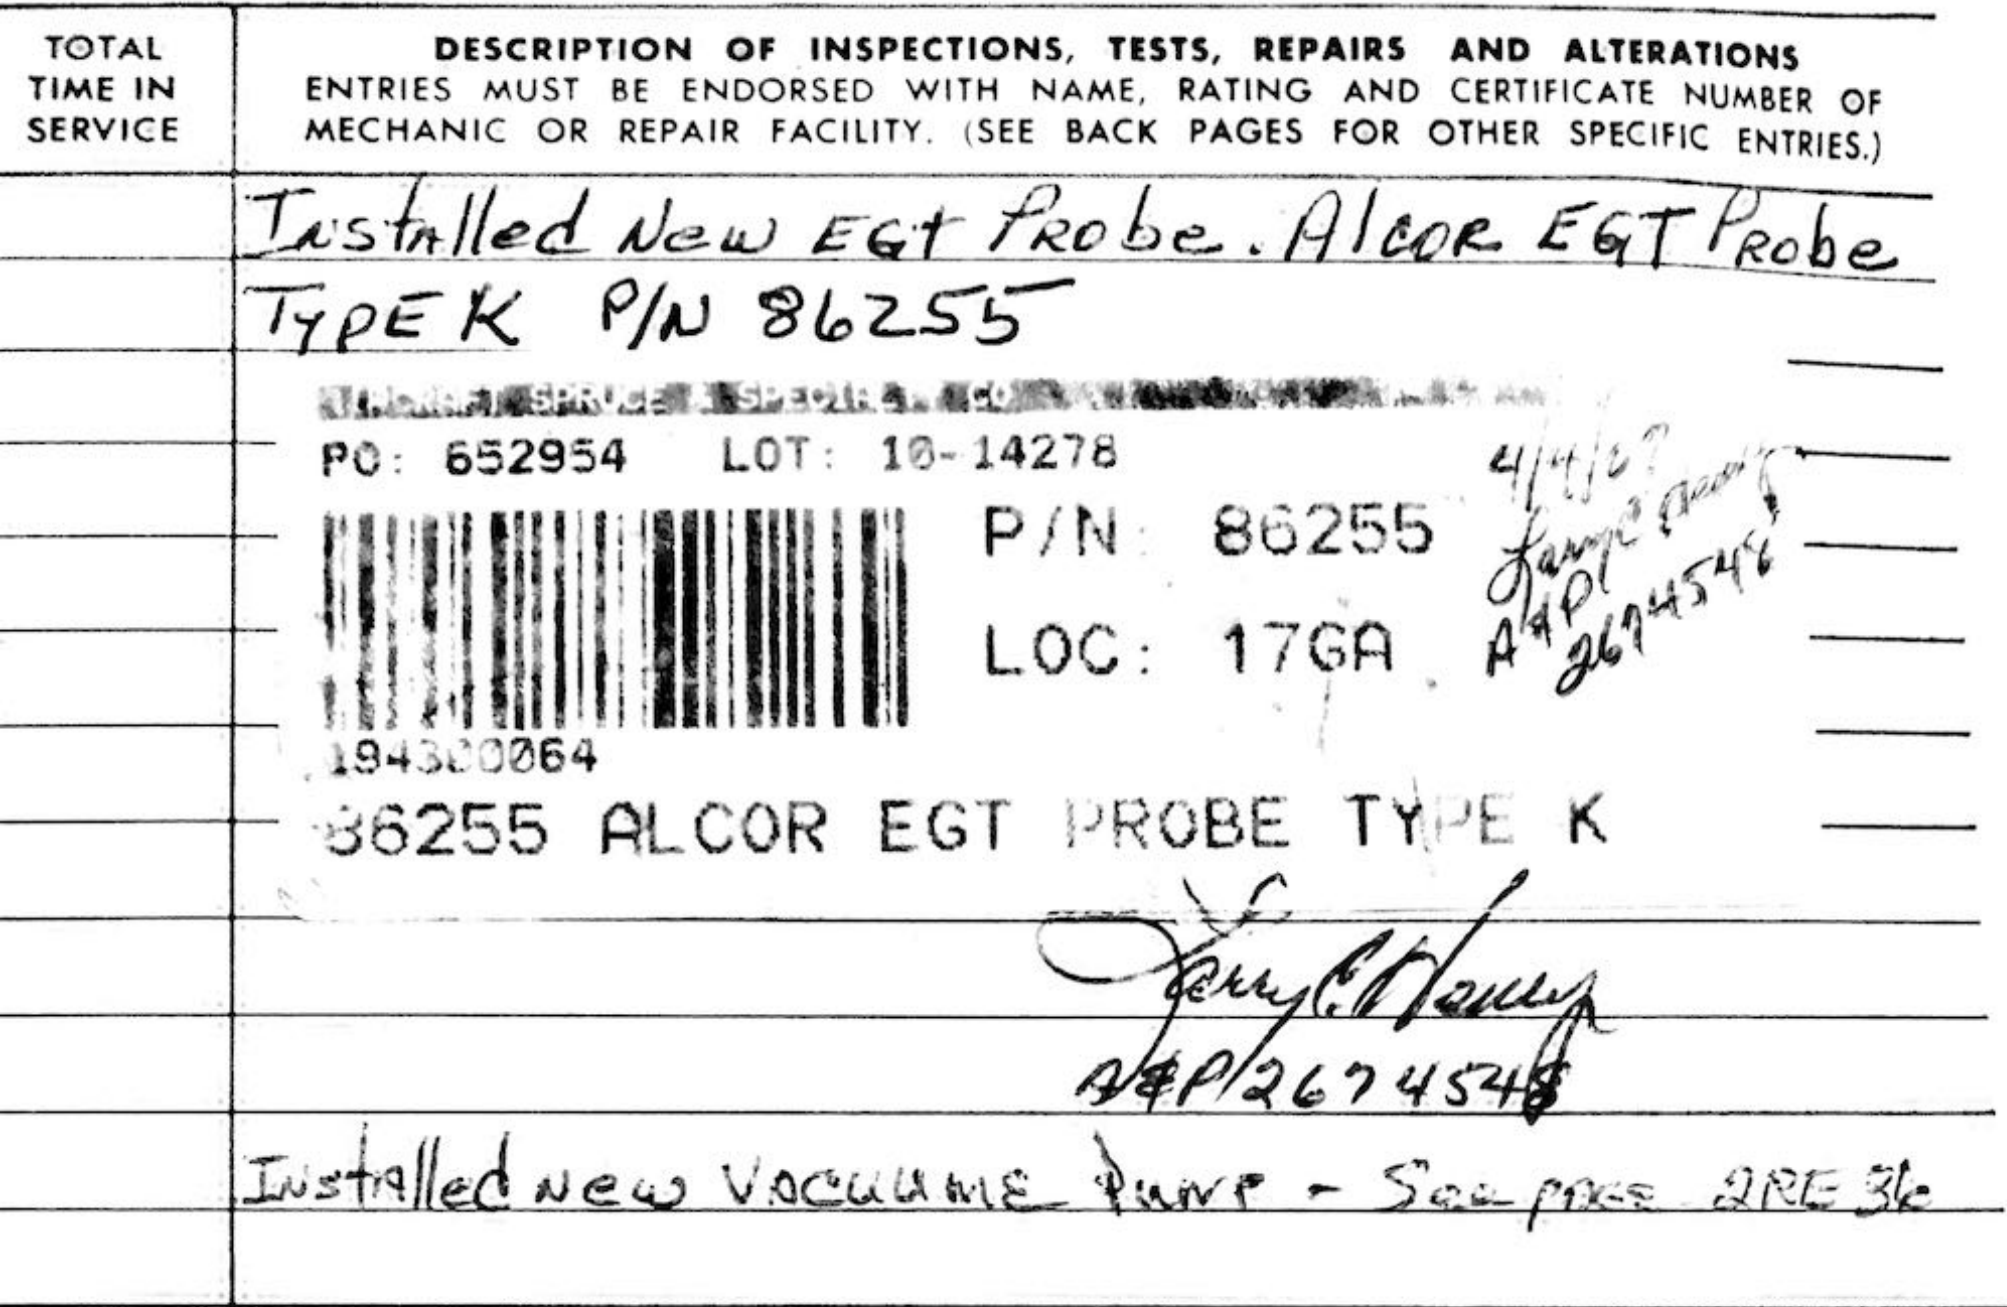 TOTAL
TIME IN
SERVICE
DESCRIPTION OF INSPECTIONS, TESTS, REPAIRS AND ALTERATIONS
ENTRIES MUST BE ENDORSED WITH NAME, RATING AND CERTIFICATE NUMBER OF
MECHANIC OR REPAIR FACILITY. (SEE BACK PAGES FOR OTHER SPECIFIC ENTRIES.)
Installed New EGT Probe. Alcor EGT Probe
Type K P/N 86255
SPRUCE & SPECIALTY CO
PO: 652954 LOT: 10-14278
P/N: 86255
LOC: 17GA
86255 ALCOR EGT PROBE TYPE K
4/4/
A&P
Larry C.
A&P 2674548
Installed New Vacuume Pump - See page